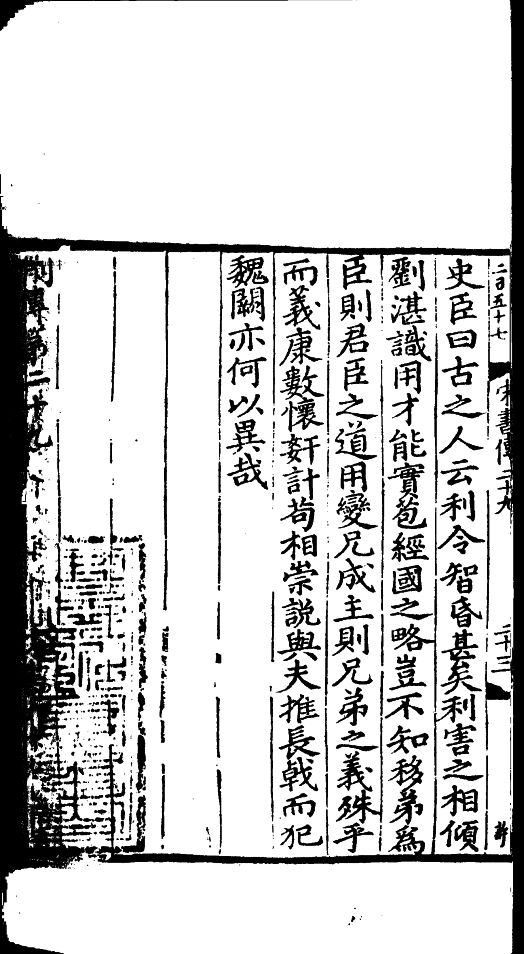 二百五十七 宋書傳二十九 二十三
史臣曰古之人云利令智昏甚矣利害之相傾
劉湛識用才能實苞經國之略豈不知移弟爲
臣則君臣之道用變兄成主則兄弟之義殊乎
而義康數懷姧計苟相崇說與夫推長戟而犯
魏闕亦何以異哉
列傳第二十九